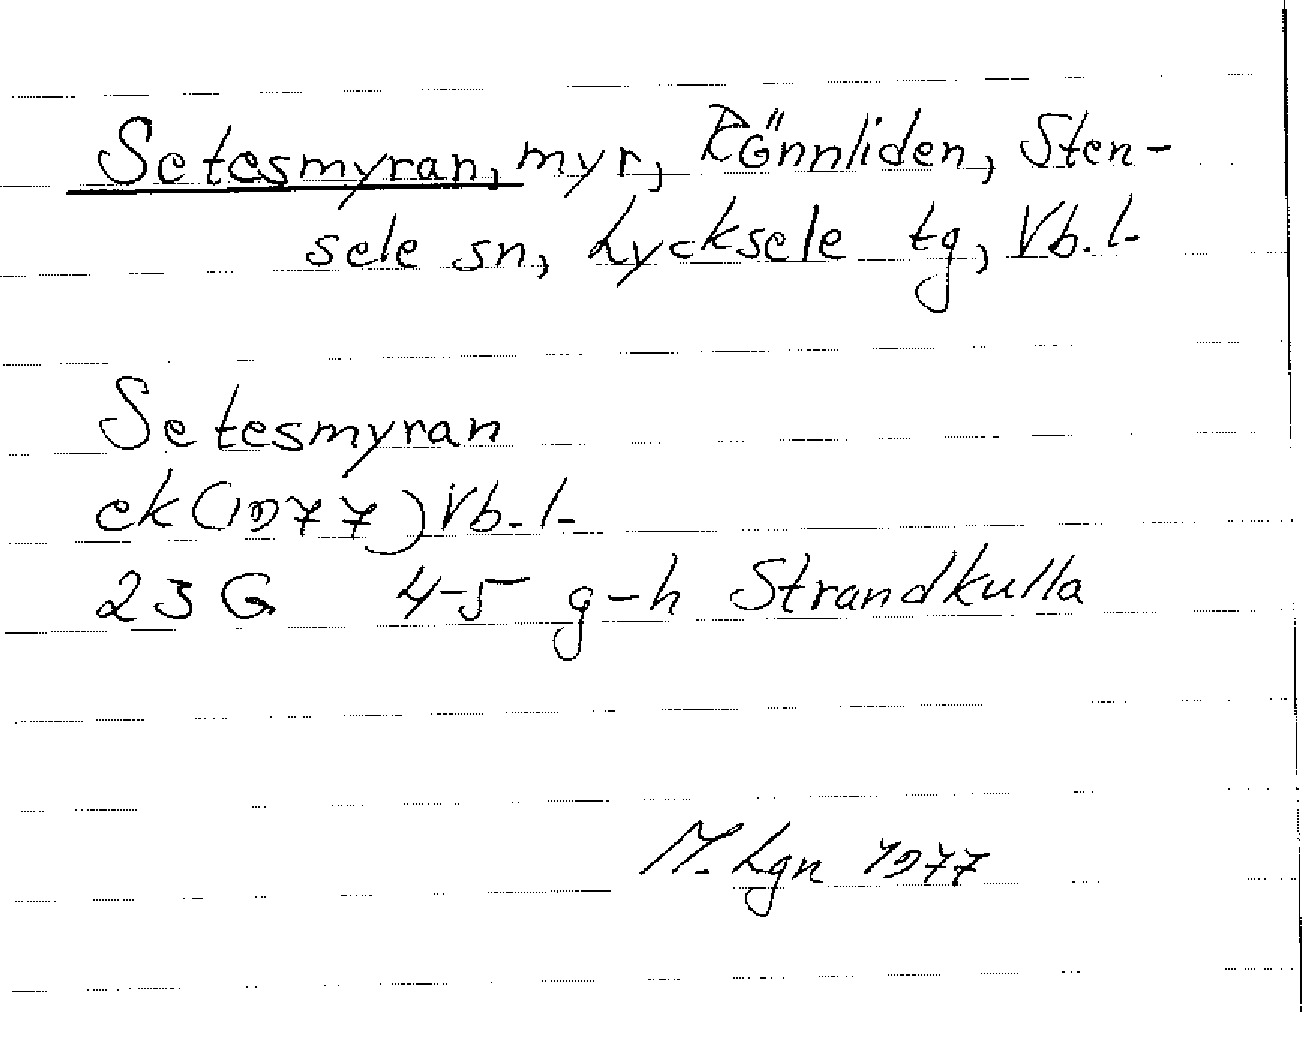 Setesmyran, myr, Rönnliden, Sten-
sele sn, Lycksele tg, Vb. l.
Setesmyran
ek (1977) Vb. l.
23 G 4-5 g-h Strandkulla
M. Lgn 1977